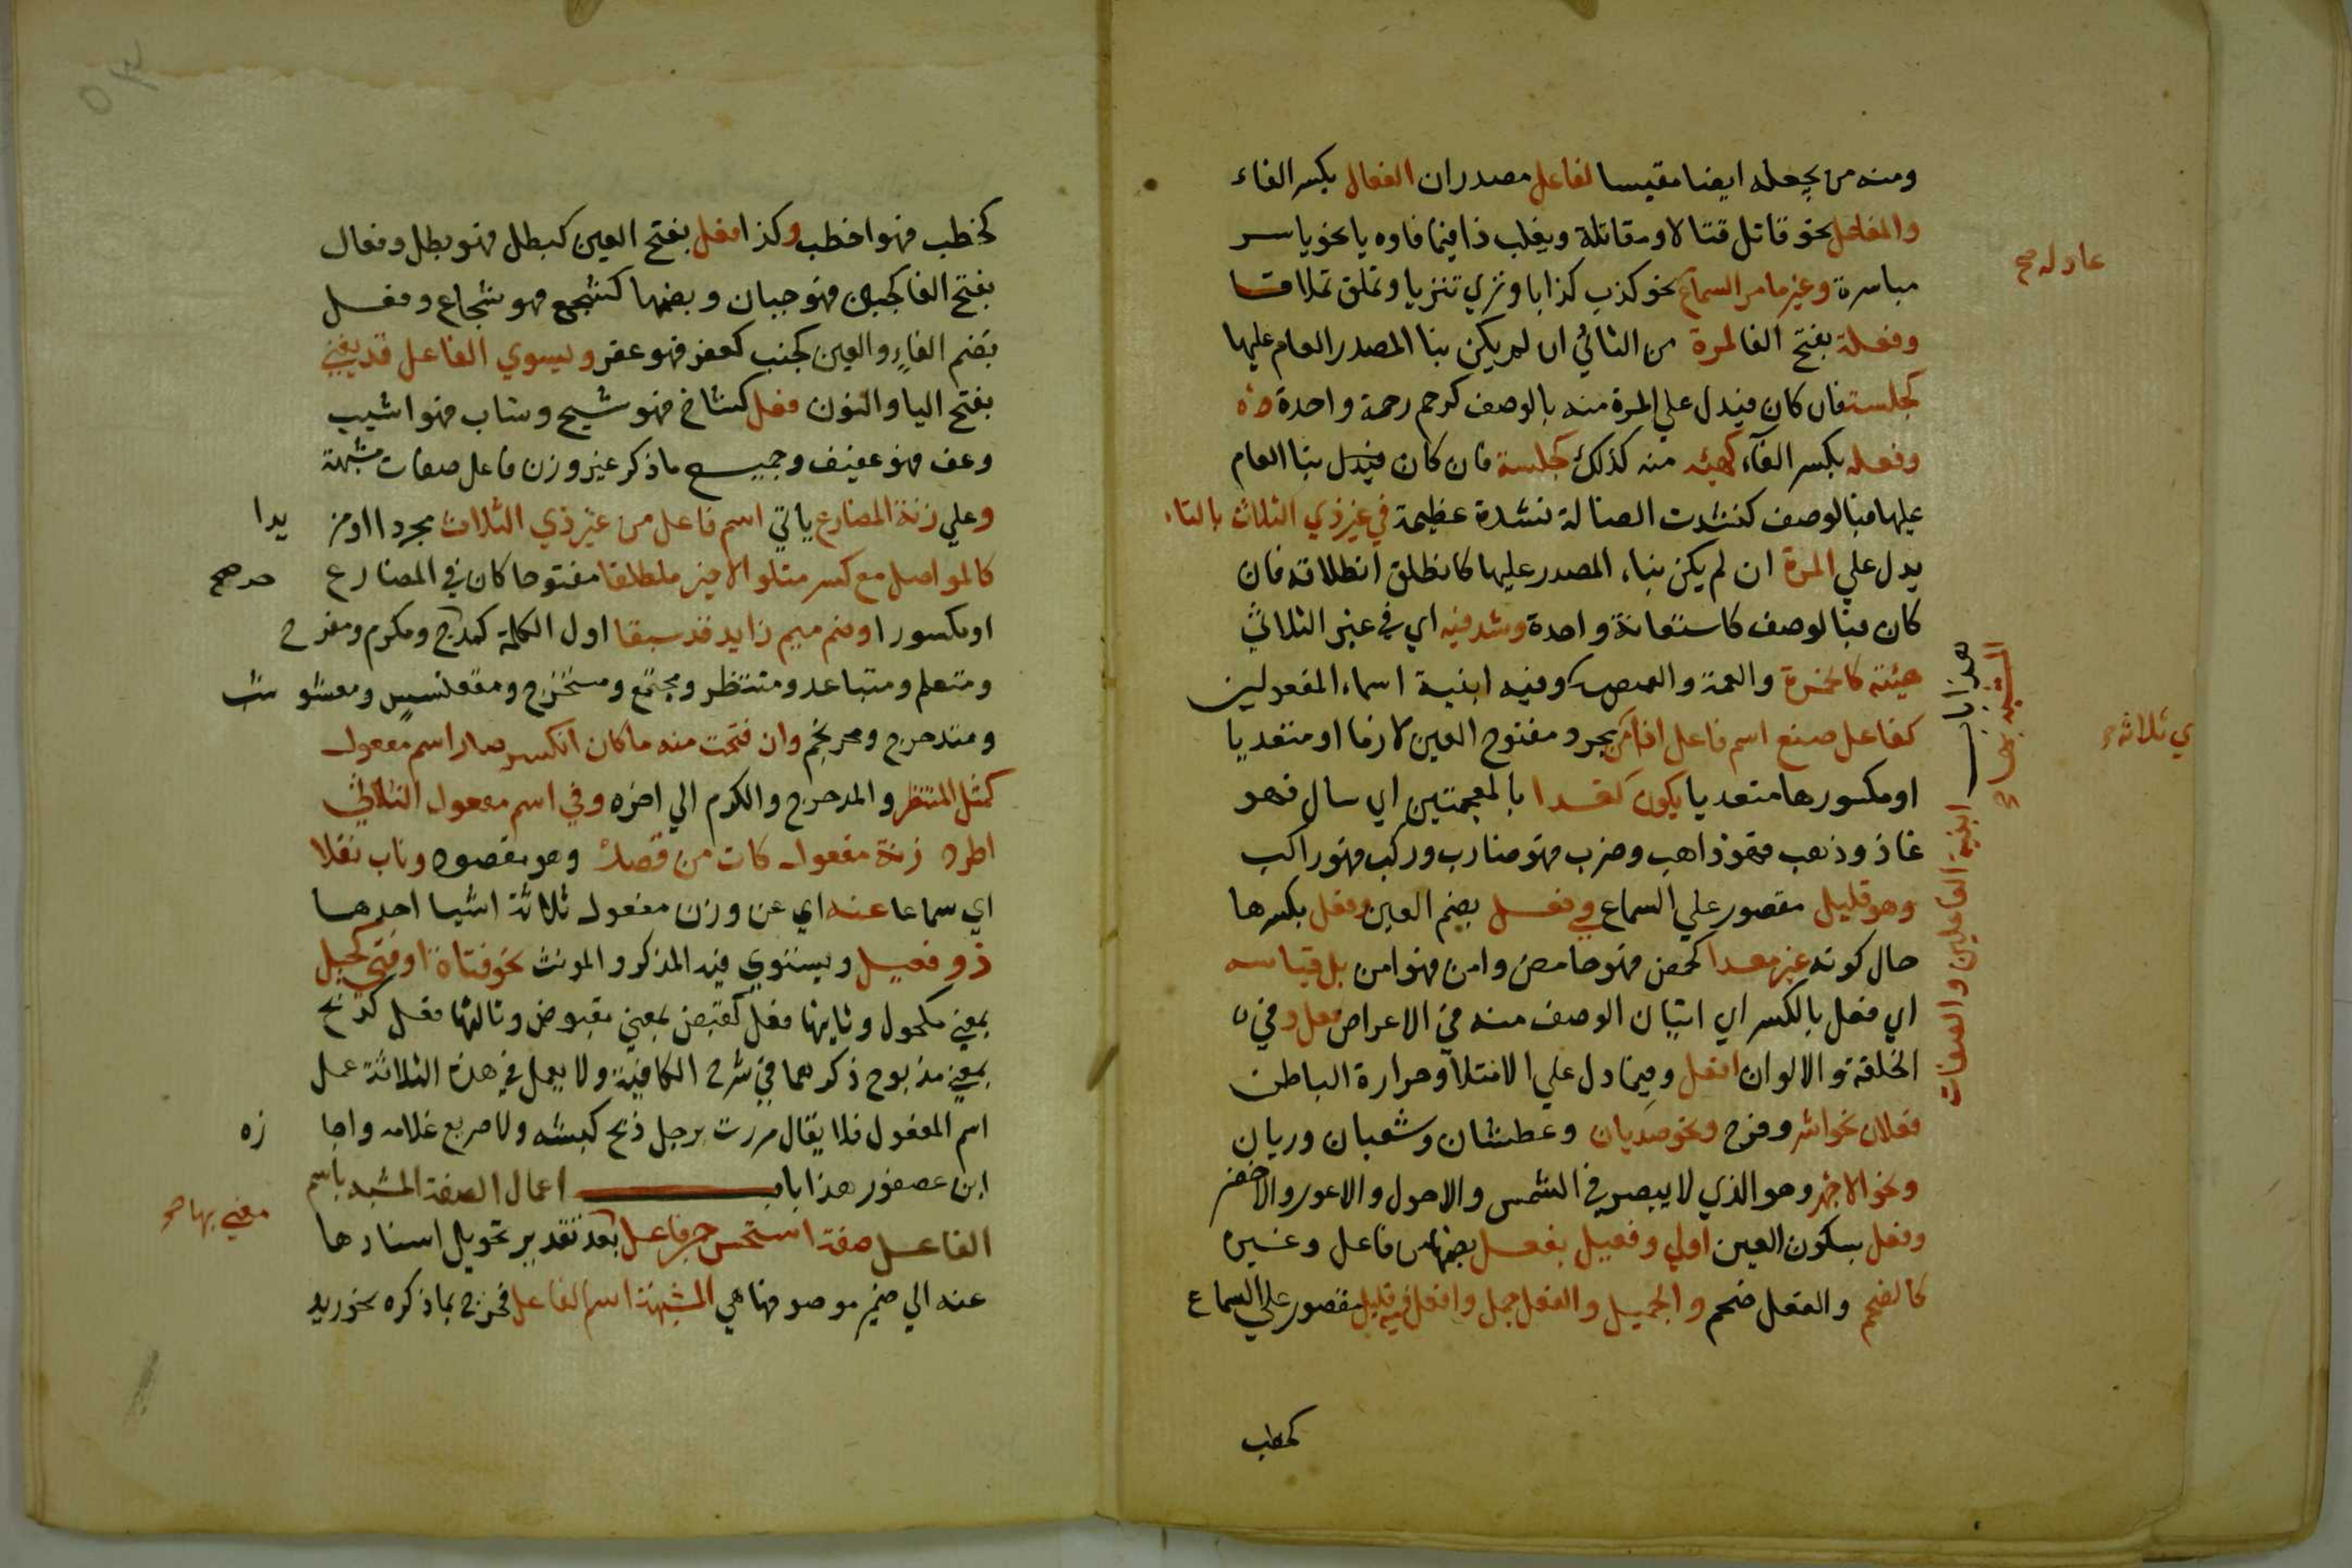 ومنه من يجعله ايضا مقيسا لفاعل مصدران الفعال بكسر الفاء
والمفاعل نحو قاتل قتالا ومقاتلة ويغلب ذا فيما فاوه يا نحو ياسر
مياسرة وغير ما مر السماع نحو كذب كذابا ونزي تنزيا وتملق تملاقا
عادله صح
وفعلة بفتح الفا لمرة من الثلاثي ان لم يكن بنا المصدر العام عليها
كجلسة فان كان فيدل علي المرة منه بالوصف كرحم رحمة واحدة
وفعله بكسر الفآء لهيئه منه كذلك كجلسة فان كان فيدل بنا العام
عليها فبالوصف كنشدت الضالة نشدة عظيمة في غير ذي الثلاث بالتاء
يدل علي المرة ان لم يكن بناء المصدر عليها كانطلق انطلاقه فان
كان فبالوصف كاستعانة واحدة وشذ فيه اي في غير الثلاثي
هيئة كالخمرة والعمة والقمصة وفيه ابنية اسماء المفعولين
هذا باب ابنية الفاعلين والصفات
المشبهة بها صح
كفاعل صغ اسم فاعل اذا من مجرد مفتوح العين لازما او متعديا
ي ثلاثة صح
او مكسورها متعديا يكون كغذا بالمعجمتين اي سال فهو
غاذ وذهب فهو ذاهب وضرب فهو ضارب وركب فهو راكب
وهو قليل مقصور علي السماع في فعل بضم العين وفعل بكسرها
حال كونه غير معدا كحمض فهو حامض وامن فهو امن بل قياسه
اي فعل بالكسر اي اتيان الوصف منه في الاعراض فعل وفي
الخلقة والالوان افعل وفيما دل علي الامتلا وحرارة الباطن
فعلان نحو اشر وفرح ونحو صديان وعطشان وشعبان وريان
ونحو الاجهر وهو الذي لا يبصر في الشمس والاحول والاعور والاخضر
وفعل بسكون العين اولي وفعيل بفعل بضمها من فاعل وغيره
كالضخم والفعل ضخم والجميل والفعل جمل وافعل فيه قليل مقصور علي السماع
كخطب
كخطب فهو اخطب وكذا فعل بفتح العين كبطل فهو بطل وفعال
بفتح الفا كجبن فهو جبان وبضمها كشجع فهو شجاع وفعل
بضم الفاء والعين كجنب كعفر فهو عفر وبسوي الفاعل قد يغني
بفتح اليا والنون فعل كشاخ فهو شيخ وشاب فهو اشيب
وعف فهو عفيف وجميع ما ذكر غير وزن فاعل صفات مشبهة
وعلي زنة المضارع ياتي اسم فاعل من غير ذي الثلاث مجردا او مزيدا
كالمواصل مع كسر متلو الاخير مطلقا مفتوحا كان في المضارع
او مكسورا وضم ميم زايد قد سبقا اول الكلمة كمدحرج ومكرم ومفرح
ومتعلم ومتباعد ومنتظر ومجتمع ومستخرج ومقعنسس ومعشوشب
ومتدحرج ومحرنجم وان فتحت منه ما كان انكسر صار اسم مفعول
كمثل المنتظر والمدحرج والمكرم الي اخره وفي اسم مفعول الثلاثي
اطرد زنة مفعول كات من قصد وهو مقصود وناب نقلا
اي سماعا عنه اي عن وزن مفعول ثلاثة اشيا احدها
ذو فعيل ويستوي فيه المذكر والمونث نحو فتاة او فتي كحيل
بمعني مكحول وثانيها فعل كقبض بمعني مقبوض وثالثها فعل كذبح
بمعني مذبوح ذكرهما في شرح الكافية ولا يعمل في هذه الثلاثة عمل
اسم المفعول فلا يقال مررت برجل ذبح كبشه ولا صريع غلامه واجازه
ابن عصفور هذا باب اعمال الصفة المشبهة باسم
الفاعل صفة استحسن جر فاعل بعد تقدير تحويل اسنادها
معني بها صح
عنه الي ضمير موصوفها هي المشبهة اسم الفاعل فخرج بما ذكره نحو زيد